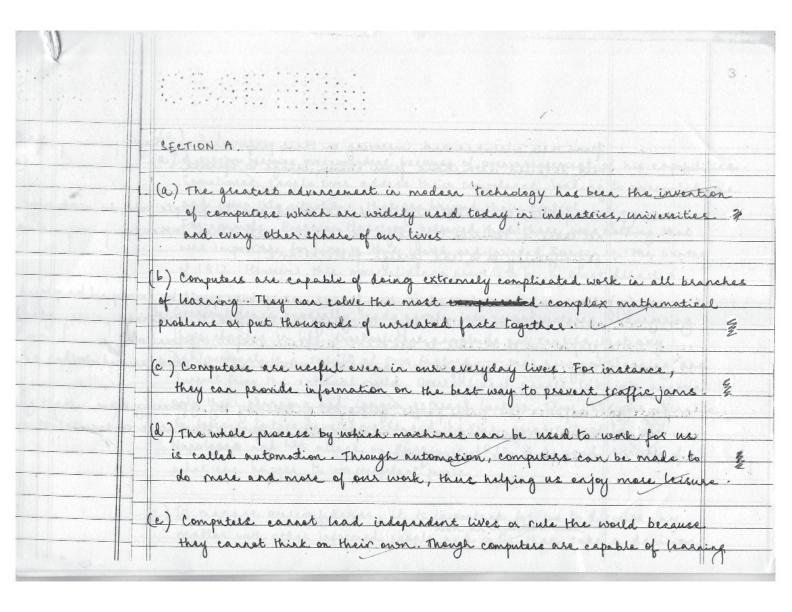 3
SECTION A.
1. (a) The greatest advancement in modern technology has been the invention
of computers which are widely used today in industries, universities
and every other sphere of our lives
(b) Computers are capable of doing extremely complicated work in all branches
of learning. They can solve the most complicated complex mathematical
problems or put thousands of unrelated facts together.
(c) Computers are useful even in our everyday lives. For instance,
they can provide information on the best way to prevent traffic jams.
(d) The whole process by which machines can be used to work for us
is called automation. Through automation, computers can be made to
do more and more of our work, thus helping us enjoy more leisure.
(e) Computers cannot lead independent lives or rule the world because
they cannot think on their own. Though computers are capable of learning